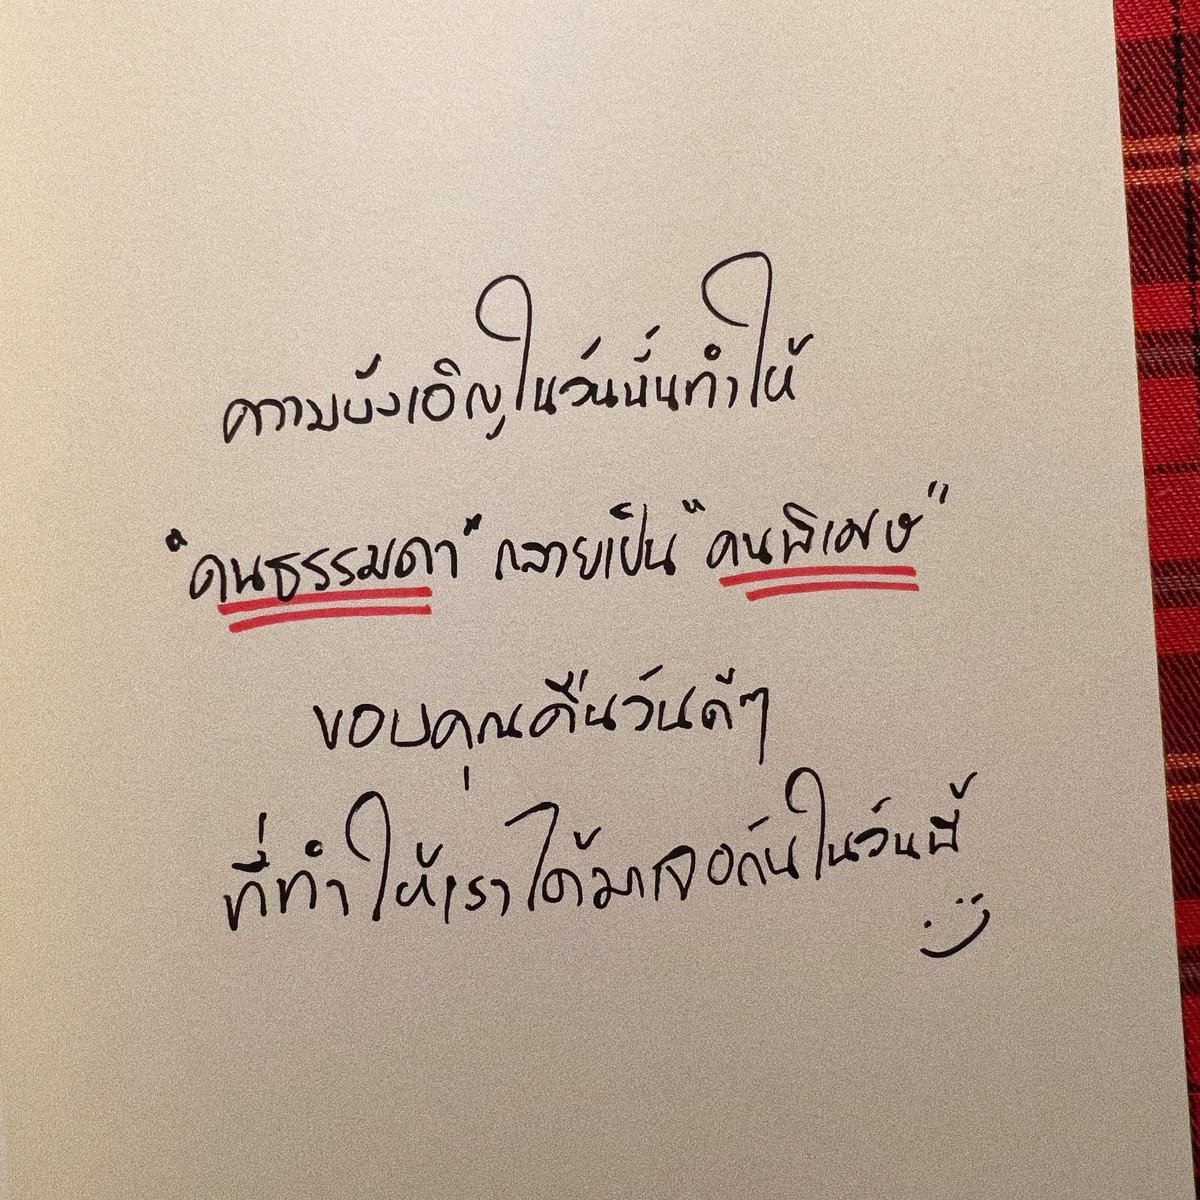 ความบังเอิญในวันนั้นทำให้
"คนธรรมดา" กลายเป็น "คนพิเศษ"
ขอบคุณคืนวันดีๆ
ที่ทำให้เราได้มาเจอกันในวันนี้
:)